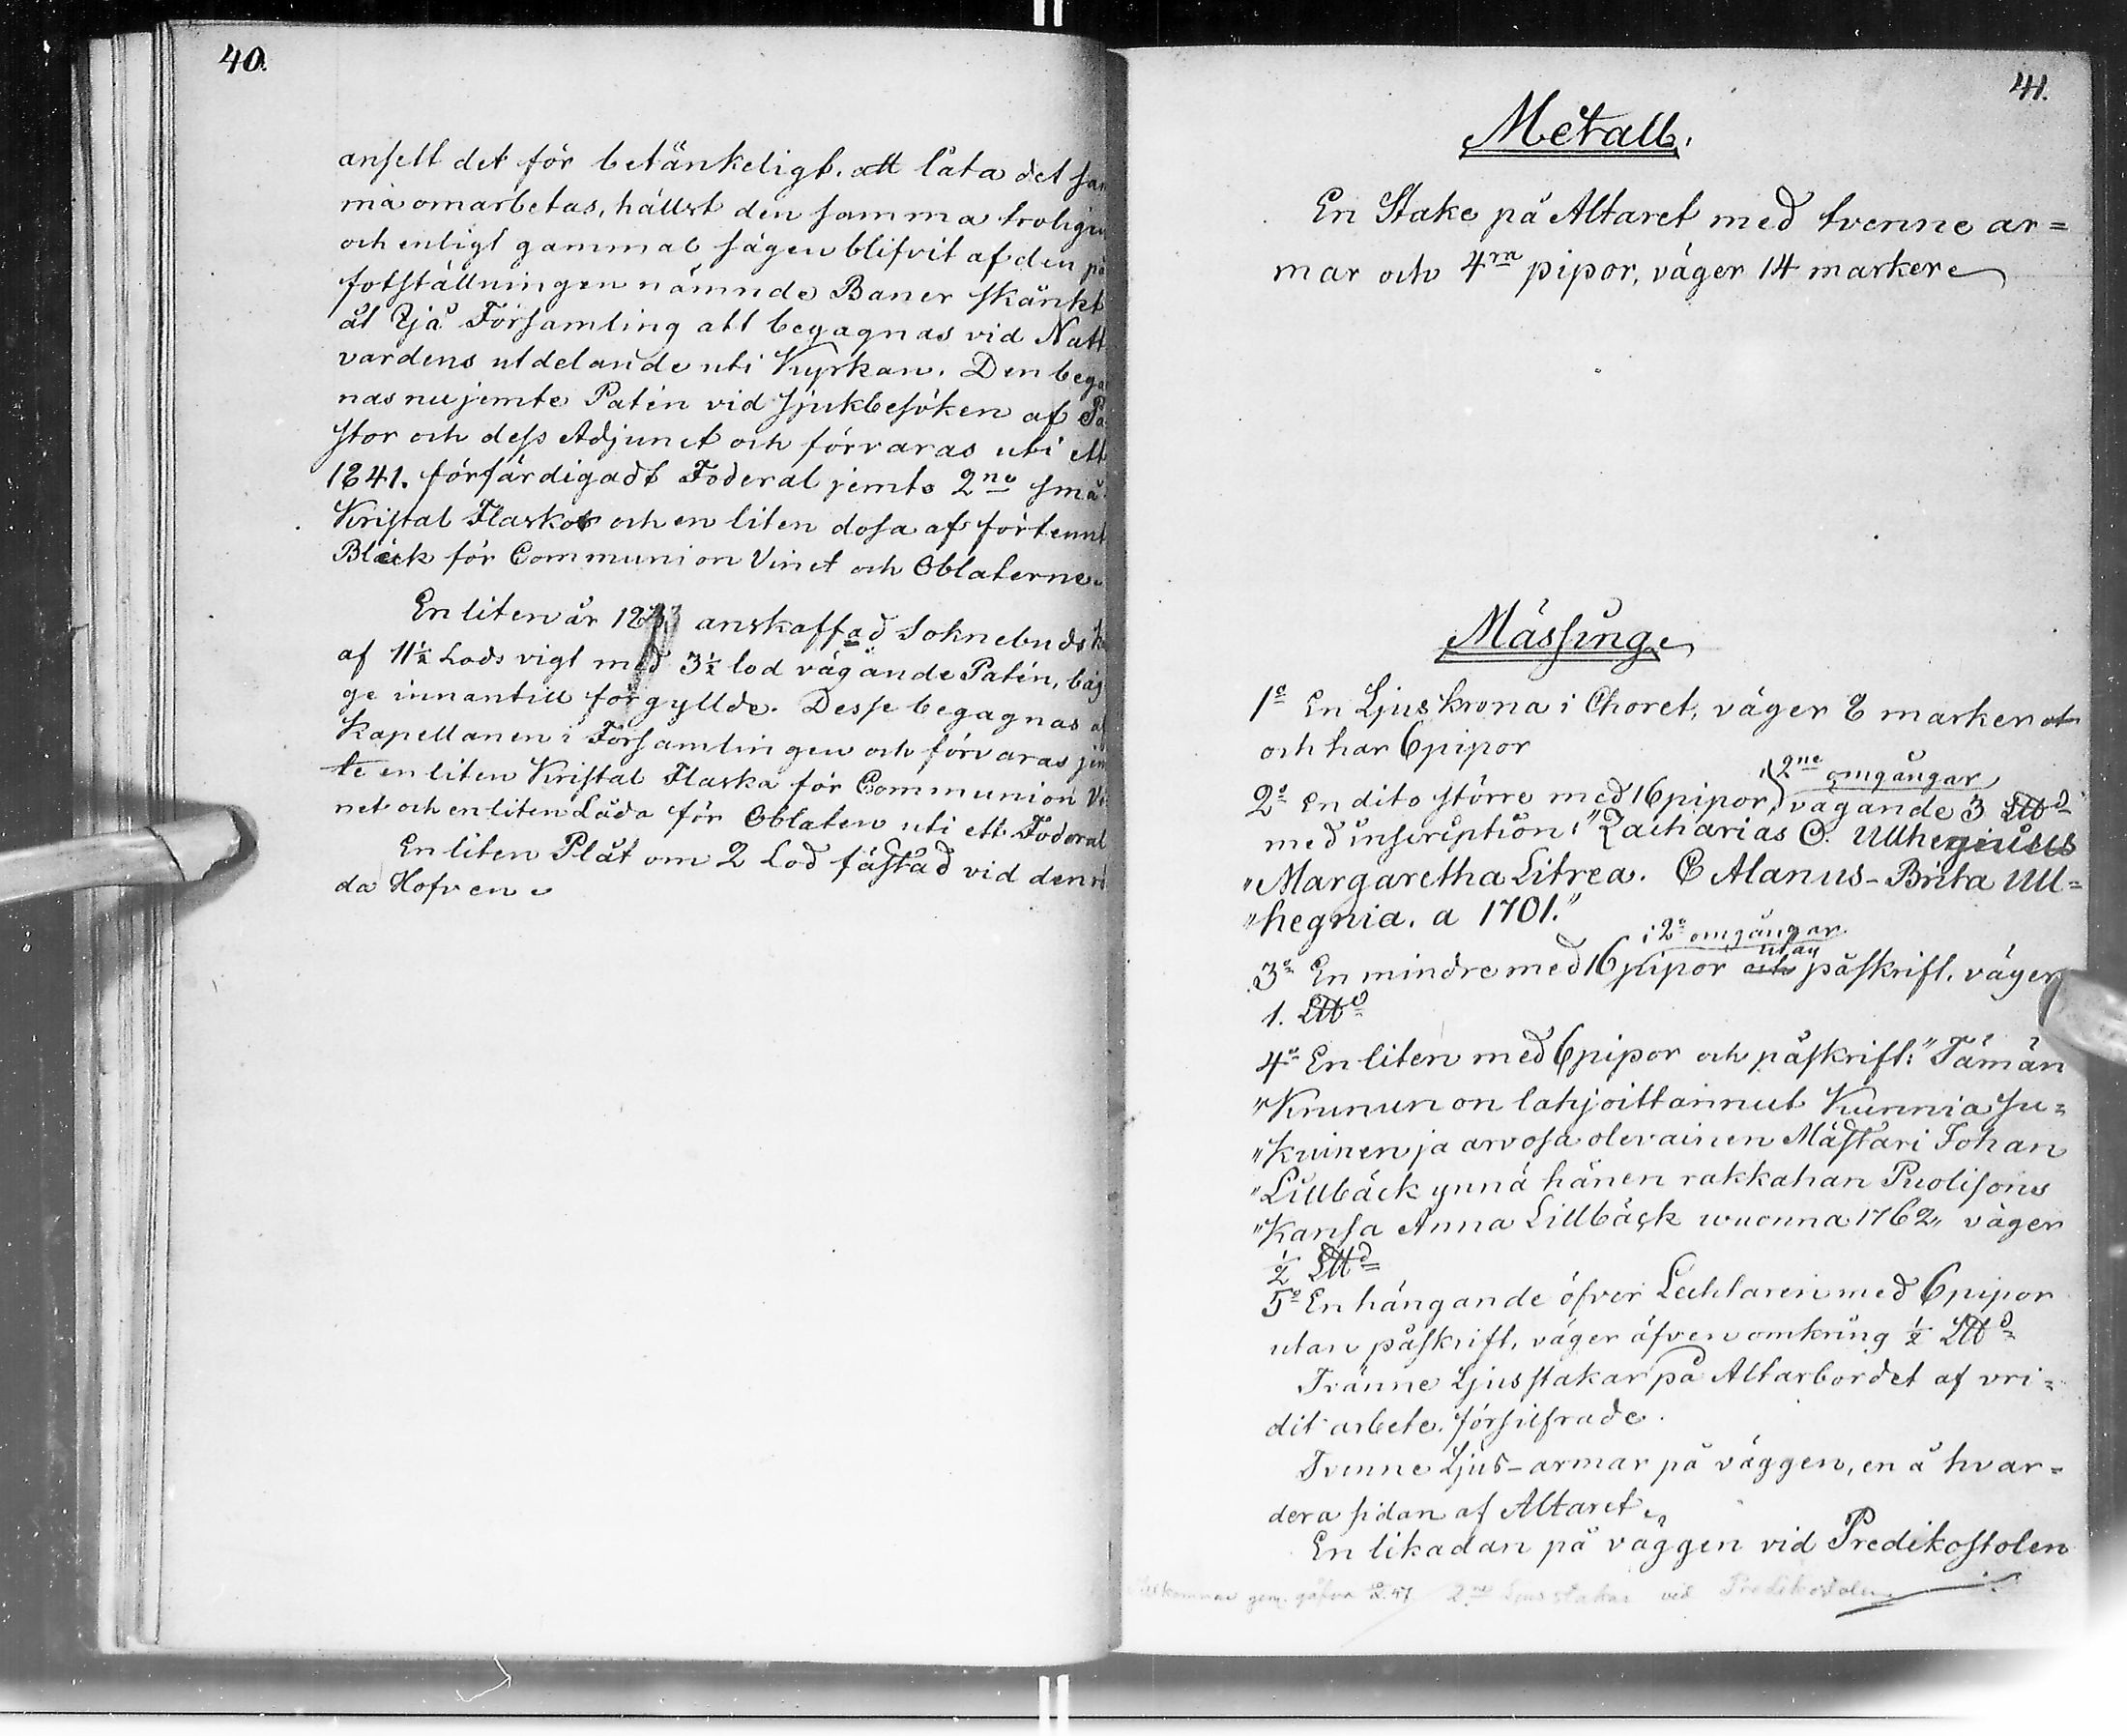 40.
ansett det för betänkeligt, att låta det sam
ma omarbetas, hällst den samma troligen
och enligt gammal sägen blifvit af den på
fotställningen nämnde Baner skänkt
åt Ijå Församling att begagnas vid Natt
vardens utdelande uti Kyrkan. Den bega
nas nu jemte Patén vid sjukbesöken af Pa
stor och dess Adjunct och förvaras uti ett
1841. förfärdigadt Foderal jemte 2ne små
Kristal Flaskor och en liten dosa af förtennt
Bläck för Communion Vinet och Oblaterne.
En liten år anskaffad Soknebuds k
af 11½ Lods vigt med 3½ lod vägande Patén, båg
ge innantill förgyllde. Desse begagnas af
Kapellanen i Församlingen och förvaras jem
te en liten Kristal Flaska för Communion Vi
net och en liten Låda för Oblaten uti ett Foderal
En liten Plåt om 2 Lod fästad vid den rö
da Hofven.
41.
Metall.
En Stake på Altaret med tvenne ar=
mar och 4ra pipor, väger 14 marker
Mässing.
1o En Ljuskrona i Choret, väger 8 marker och
och har 6 pipor
i 2ne omgångar
2o En dito större med 16 pipor, vägande 3 LUd
med inscription: "Zacharias O. Ullhegius
"Margaretha Litrea. C Alanus - Brita Ull=
"hegnia. a 1701."
i 2o omgångar
utan
3o En mindre med 16 pipor och påskrift, väger
1. LUd
4o En liten med 6 pipor och påskrift: "Tämän
"Krunun on lahjoittannut Kunnia su=
"kuinen ja arvosa olevainen Mästari Johan
"Lillbäck ynnä hänen rakkahan Puolisons
"Kansa Anna Lillbäck wuonna 1762" väger
½ LUd
5o En hängande öfver Lecktaren med 6 pipor
utan påskrift, väger äfven omkring ½ LUd
Tvänne Ljusstakar på Altarbordet af vri=
dit arbete. försilfrade.
Tvenne Ljus-armar på väggen, en å hvar=
dera sidan af Altaret.
En likadan på väggen vid Predikostolen
gen. gåfva 2ne Ljusstakar vid Predikostolen